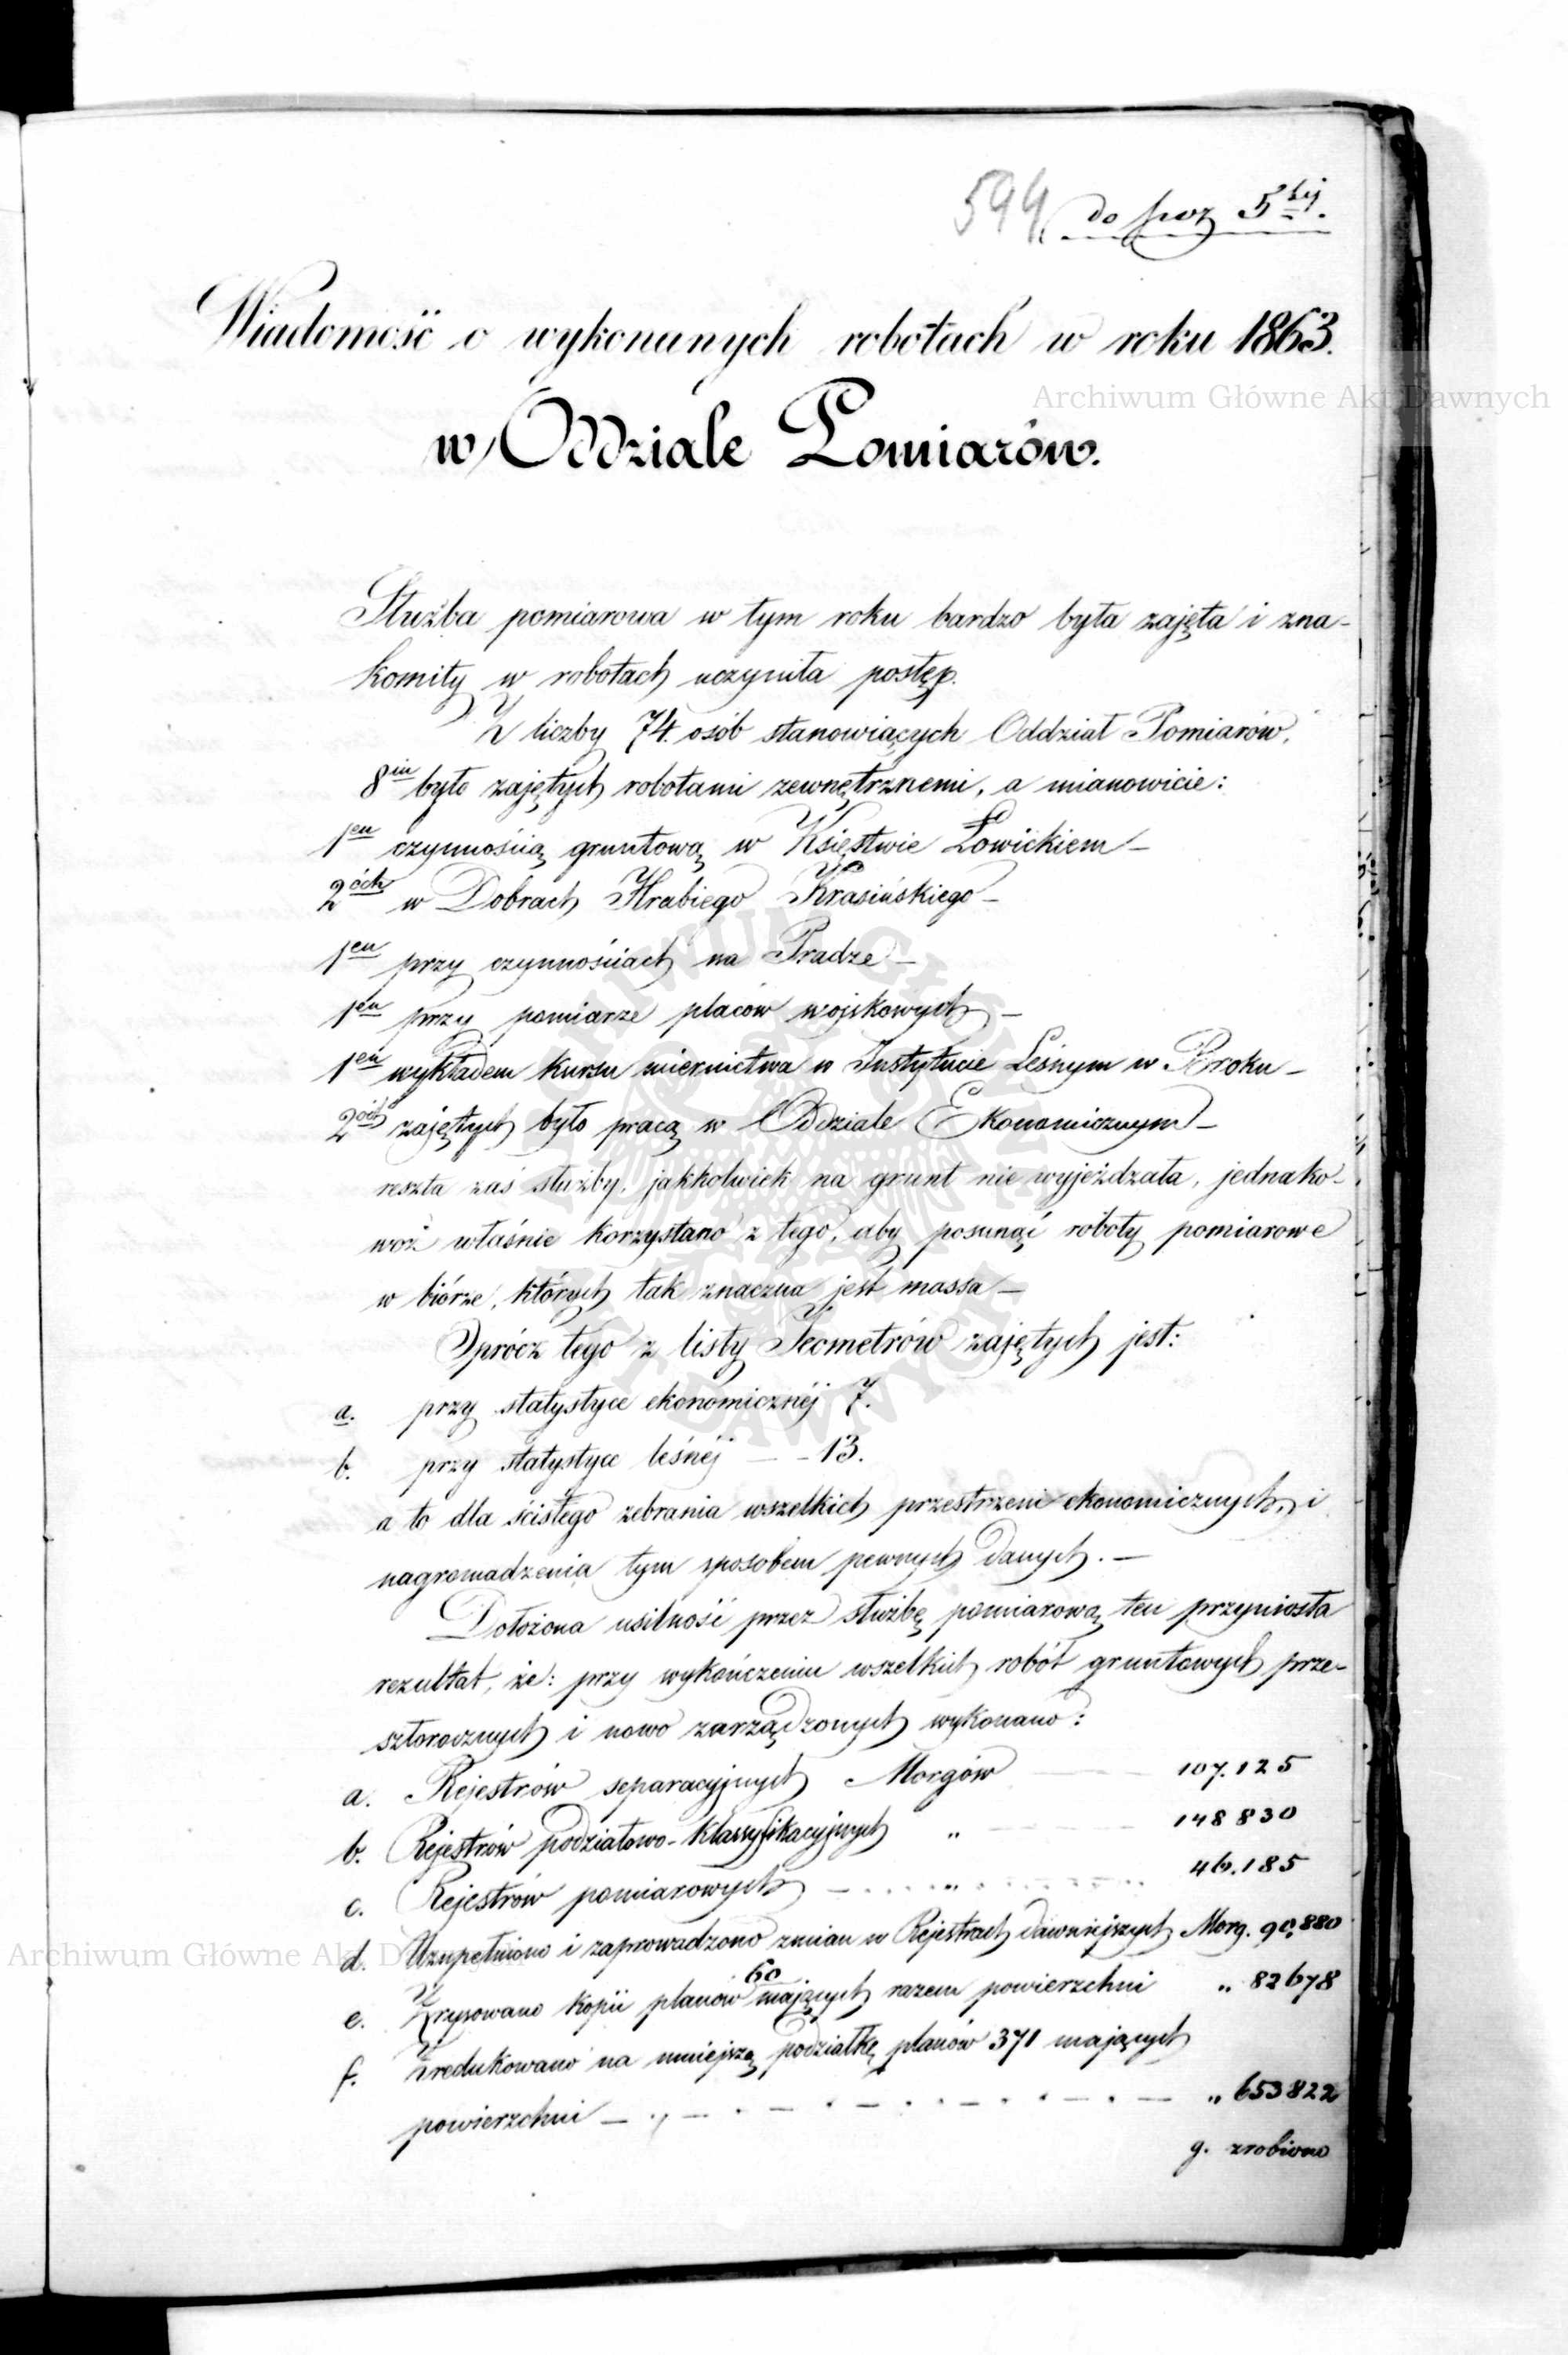 594. do poz 5tej.
Wiadomość o wykonanych robotach w roku 1863.
Archiwum Główne Akt Dawnych
w Oddziale Pomiarów.
Służba pomiarowa w tym roku bardzo była zajęta i zna-
komity w robotach uczyniła postęp.
Z liczby 74. osób stanowiących Oddział Pomiarów,
8iu było zajętych robotami zewnętrznemi, a mianowicie:
1en czynnością gruntową w Księstwie Łowickiem –
2óch w Dobrach Hrabiego Krasińskiego –
1en przy czynnościach na Pradze –
1en przy pomiarze placów wojskowych –
1en wykładem kursu miernictwa w Instytucie Leśnym w Broku –
2óch zajętych było pracą w Oddziale Ekonomicznym –
reszta zaś służby, jakkolwiek na grunt nie wyjeżdzała, jednako-
woż właśnie korzystano z tego, aby posunąć roboty pomiarowe
w biórze, których tak znaczna jest massa –
Oprócz tego z listy Jeometrów zajętych jest:
a. przy statystyce ekonomicznéj 7.
b. przy statystyce leśnéj – – 13.
a to dla ścisłego zebrania wszelkich przestrzeni ekonomicznych, i
nagromadzenia tym sposobem pewnych danych. –
Dołożona usilność przez służbę pomiarową ten przyniosła
rezultat, że: przy wykończeniu wszelkich robót gruntowych prze-
szłorocznych i nowo zarządzonych wykonano:
a. Rejestrów separacyjnych Morgów – 107.125
b. Rejestrów podziałowo-klassyfikacyjnych „ – 148830
c. Rejestrów pomiarowych – „ 46.185
d. Uzupełniono i zaprowadzono zmian w Rejestrach dawniejszych Morg. 90,880
Archiwum Główne Akt Dawnych
e. Zrysowano kopii planów 60 mających razem powierzchni „ 82678
f. Zredukowano na mniejszą podziałkę planów 371 mających
powierzchni – „ – . – . – . – „ 653822
g. zrobiono